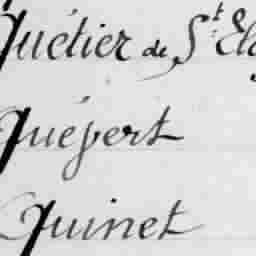 Quétier de St Ela
Quépert
Quinet